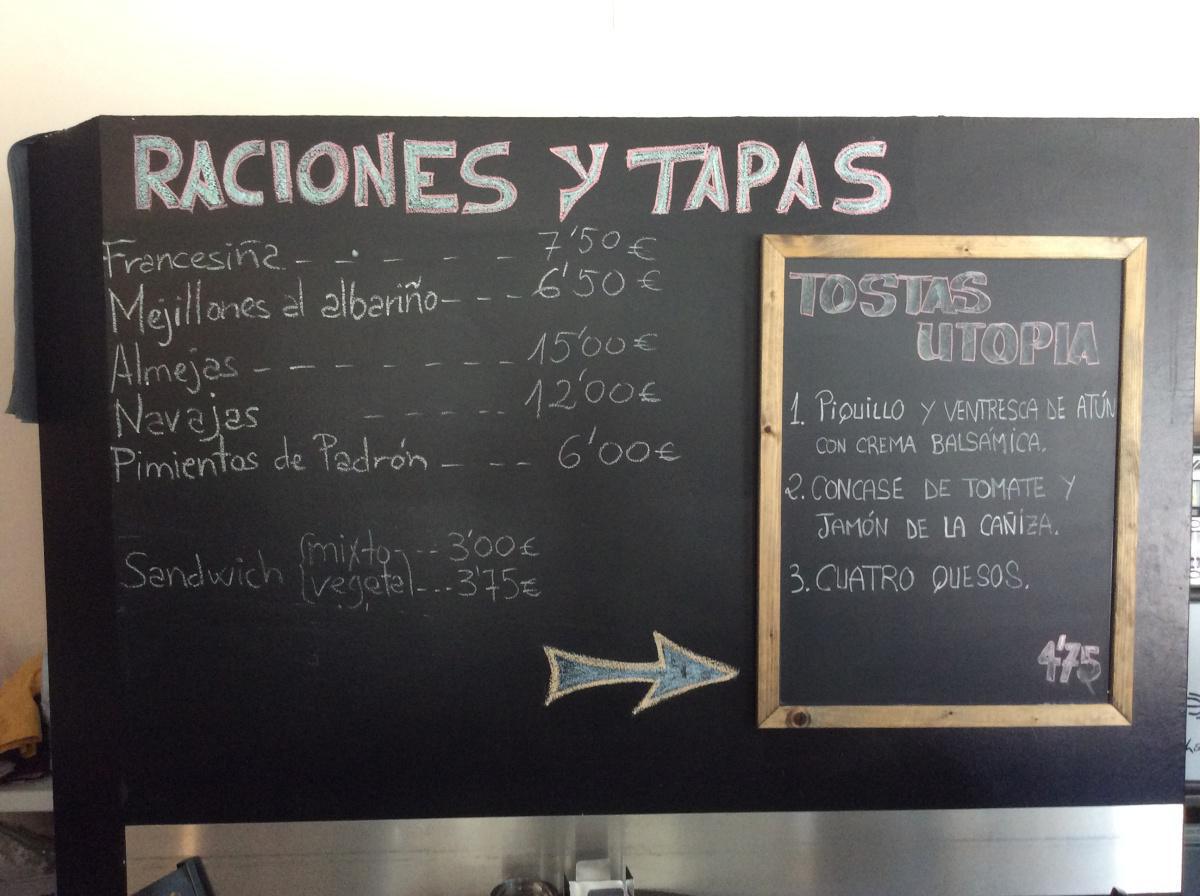 RACIONES Y TAPAS
Francesiña - - - - - - 7'50€
Mejillones al albariño - - - 6'50€
Almejas - - - - - - - 15'00€
Navajas - - - - - 12'00€
Pimientos de Padrón - - - - 6'00€
Sandwich {mixto} -- 3'00€
{vegetal} --- 3'75€
TOSTAS
UTOPIA
1. PIQUILLO Y VENTRESCA DE ATÚN
CON CREMA BALSÁMICA.
2. CONCASE DE TOMATE Y
JAMÓN DE LA CAÑIZA.
3. CUATRO QUESOS.
4'75